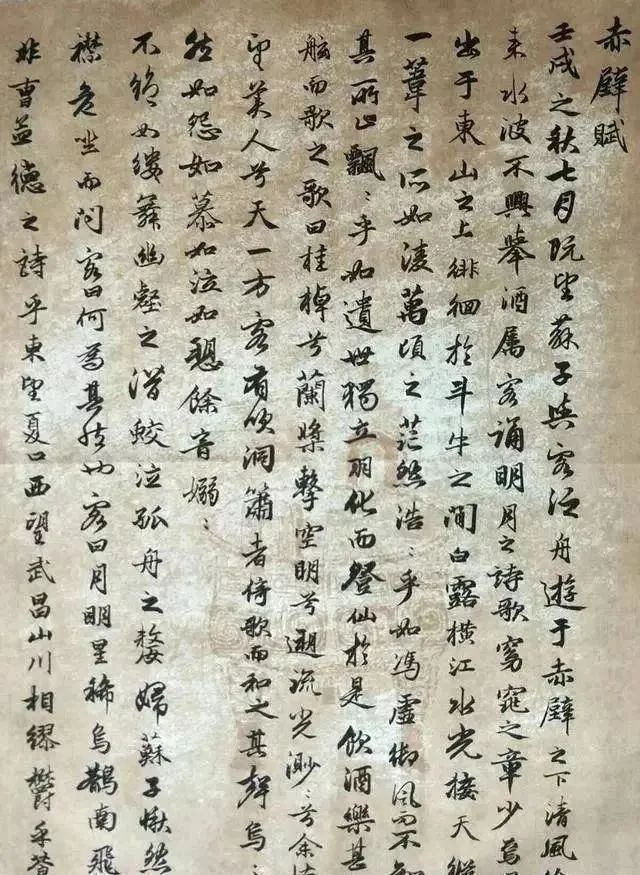 赤壁賦
壬戌之秋七月既望蘇子與客泛舟遊于赤壁之下清風
来水波不興舉酒属客誦明月之詩歌窈窕之章少焉
出于東山之上徘徊於斗牛之間白露橫江水光接天縱
一葦之所如淩萬頃之茫然浩：乎如馮虛御風而不知
其所止飄：乎如遺世獨立羽化而登仙於是飲酒樂甚
舷而歌之歌曰桂棹兮蘭槳擊空明兮遡流光渺：兮余懷
望美人兮天一方客有吹洞簫者倚歌而和之其聲烏：
然如怨如慕如泣如愬餘音嫋：
不絕如縷舞幽壑之潛蛟泣孤舟之嫠婦蘇子愀然
襟危坐而問客曰何為其然也客曰月明星稀烏鵲南飛
非曹孟德之詩乎東望夏口西望武昌山川相繆鬱乎蒼